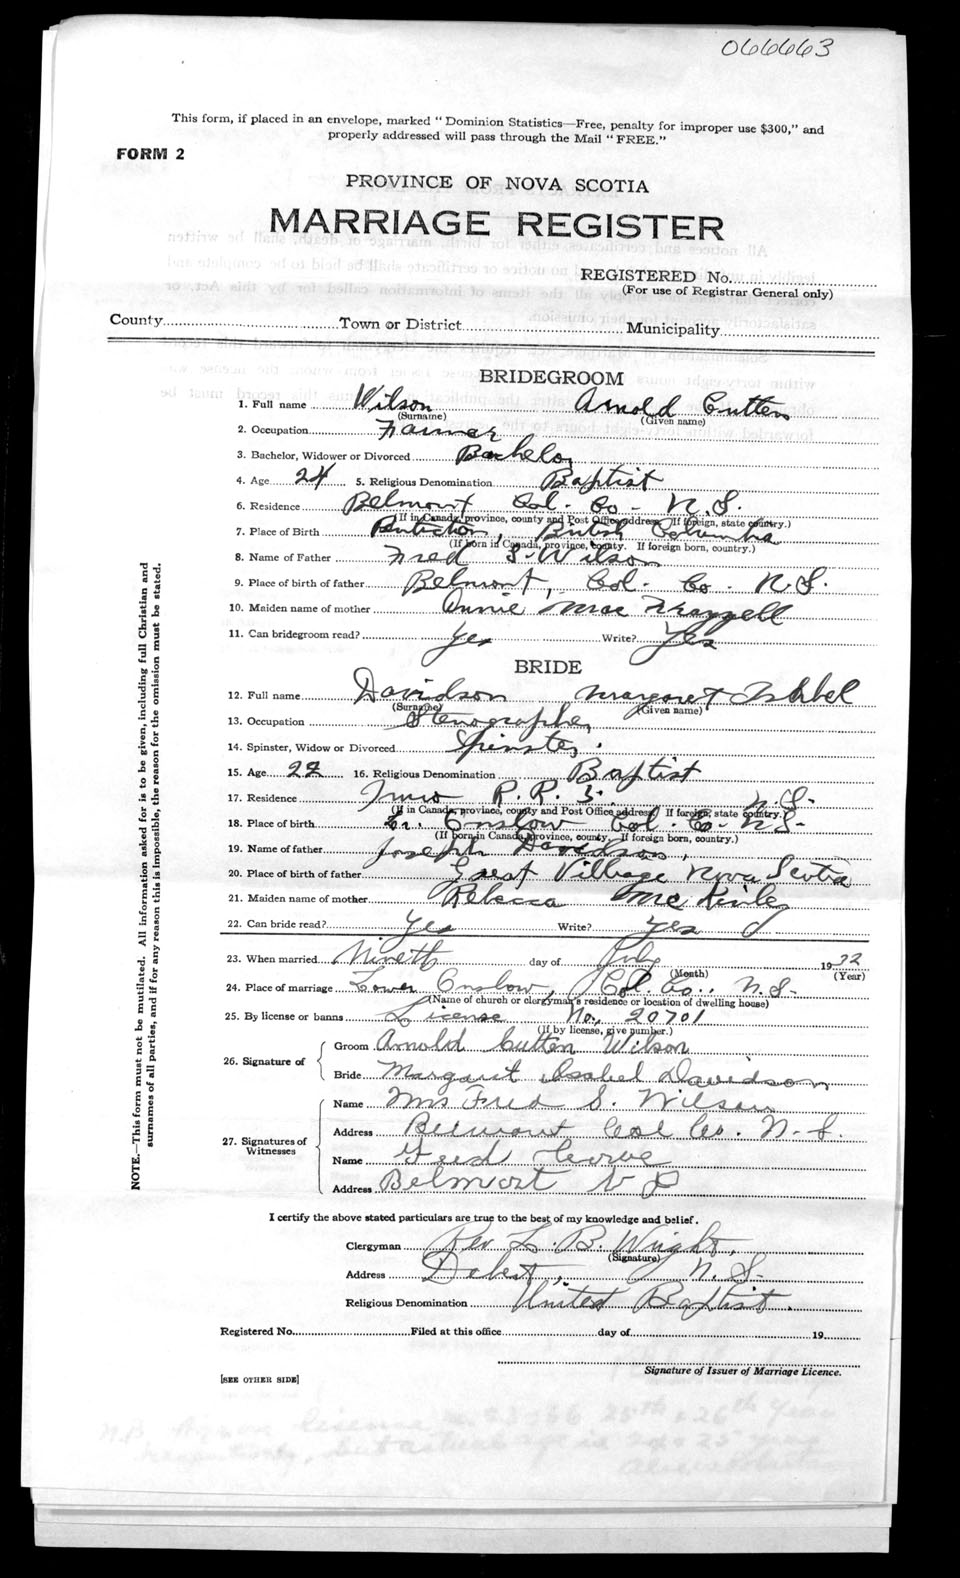 066663
This form, if placed in an envelope, marked "Dominion Statistics—Free, penalty for improper use $300," and
properly addressed will pass through the Mail "FREE."
FORM 2
PROVINCE OF NOVA SCOTIA
MARRIAGE REGISTER
REGISTERED No.
(For use of Registrar General only)
County Town or District Municipality
BRIDEGROOM
1. Full name Wilson Arnold Cutten
(Surname) (Given name)
2. Occupation Farmer
3. Bachelor, Widower or Divorced Bachelor
4. Age 24 5. Religious Denomination Baptist
6. Residence Belmont Col. Co. N.S.
(If in Canada, province, county and Post Office address. If foreign, state country.)
7. Place of Birth Penticton, British Columbia
(If born in Canada, province, county. If foreign born, country.)
8. Name of Father Fred S. Wilson
9. Place of birth of father Belmont, Col. Co. N.S.
10. Maiden name of mother Annie Mae
11. Can bridegroom read? Yes Write? Yes
BRIDE
12. Full name Davidson Margaret Isabel
(Surname) (Given name)
13. Occupation Stenographer
14. Spinster, Widow or Divorced Spinster.
15. Age 22 16. Religious Denomination Baptist
17. Residence Truro R.R. 3. N.S.
(If in Canada, province, county and Post Office address. If foreign, state country.)
18. Place of birth Lr. Onslow Col. Co. N.S.
(If born in Canada, province, county. If foreign born, country.)
19. Name of father Joseph Davidson,
20. Place of birth of father Great Village Nova Scotia
21. Maiden name of mother Rebecca McKinley
22. Can bride read? Yes Write? Yes
23. When married Nineth day of July 1932
(Month) (Year)
24. Place of marriage Lower Onslow, Col. Co., N.S.
(Name of church or clergyman's residence or location of dwelling house)
25. By license or banns License No. 20701
(If by license, give number.)
26. Signature of Groom Arnold Cutten Wilson
Bride Margaret Isabel Davidson
27. Signatures of Witnesses
Name Mrs Fred S. Wilson
Address Belmont Col Co. N.S.
Name Fred
Address Belmont N S
I certify the above stated particulars are true to the best of my knowledge and belief.
Clergyman Rev L. B. Wright,
(Signature)
Address Debert, N.S.
Religious Denomination United Baptist.
Registered No. Filed at this office day of 19
Signature of Issuer of Marriage Licence.
[SEE OTHER SIDE]
NOTE.—This form must not be mutilated. All information asked for is to be given, including full Christian and
surnames of all parties, and if for any reason this is impossible, the reason for the omission must be stated.